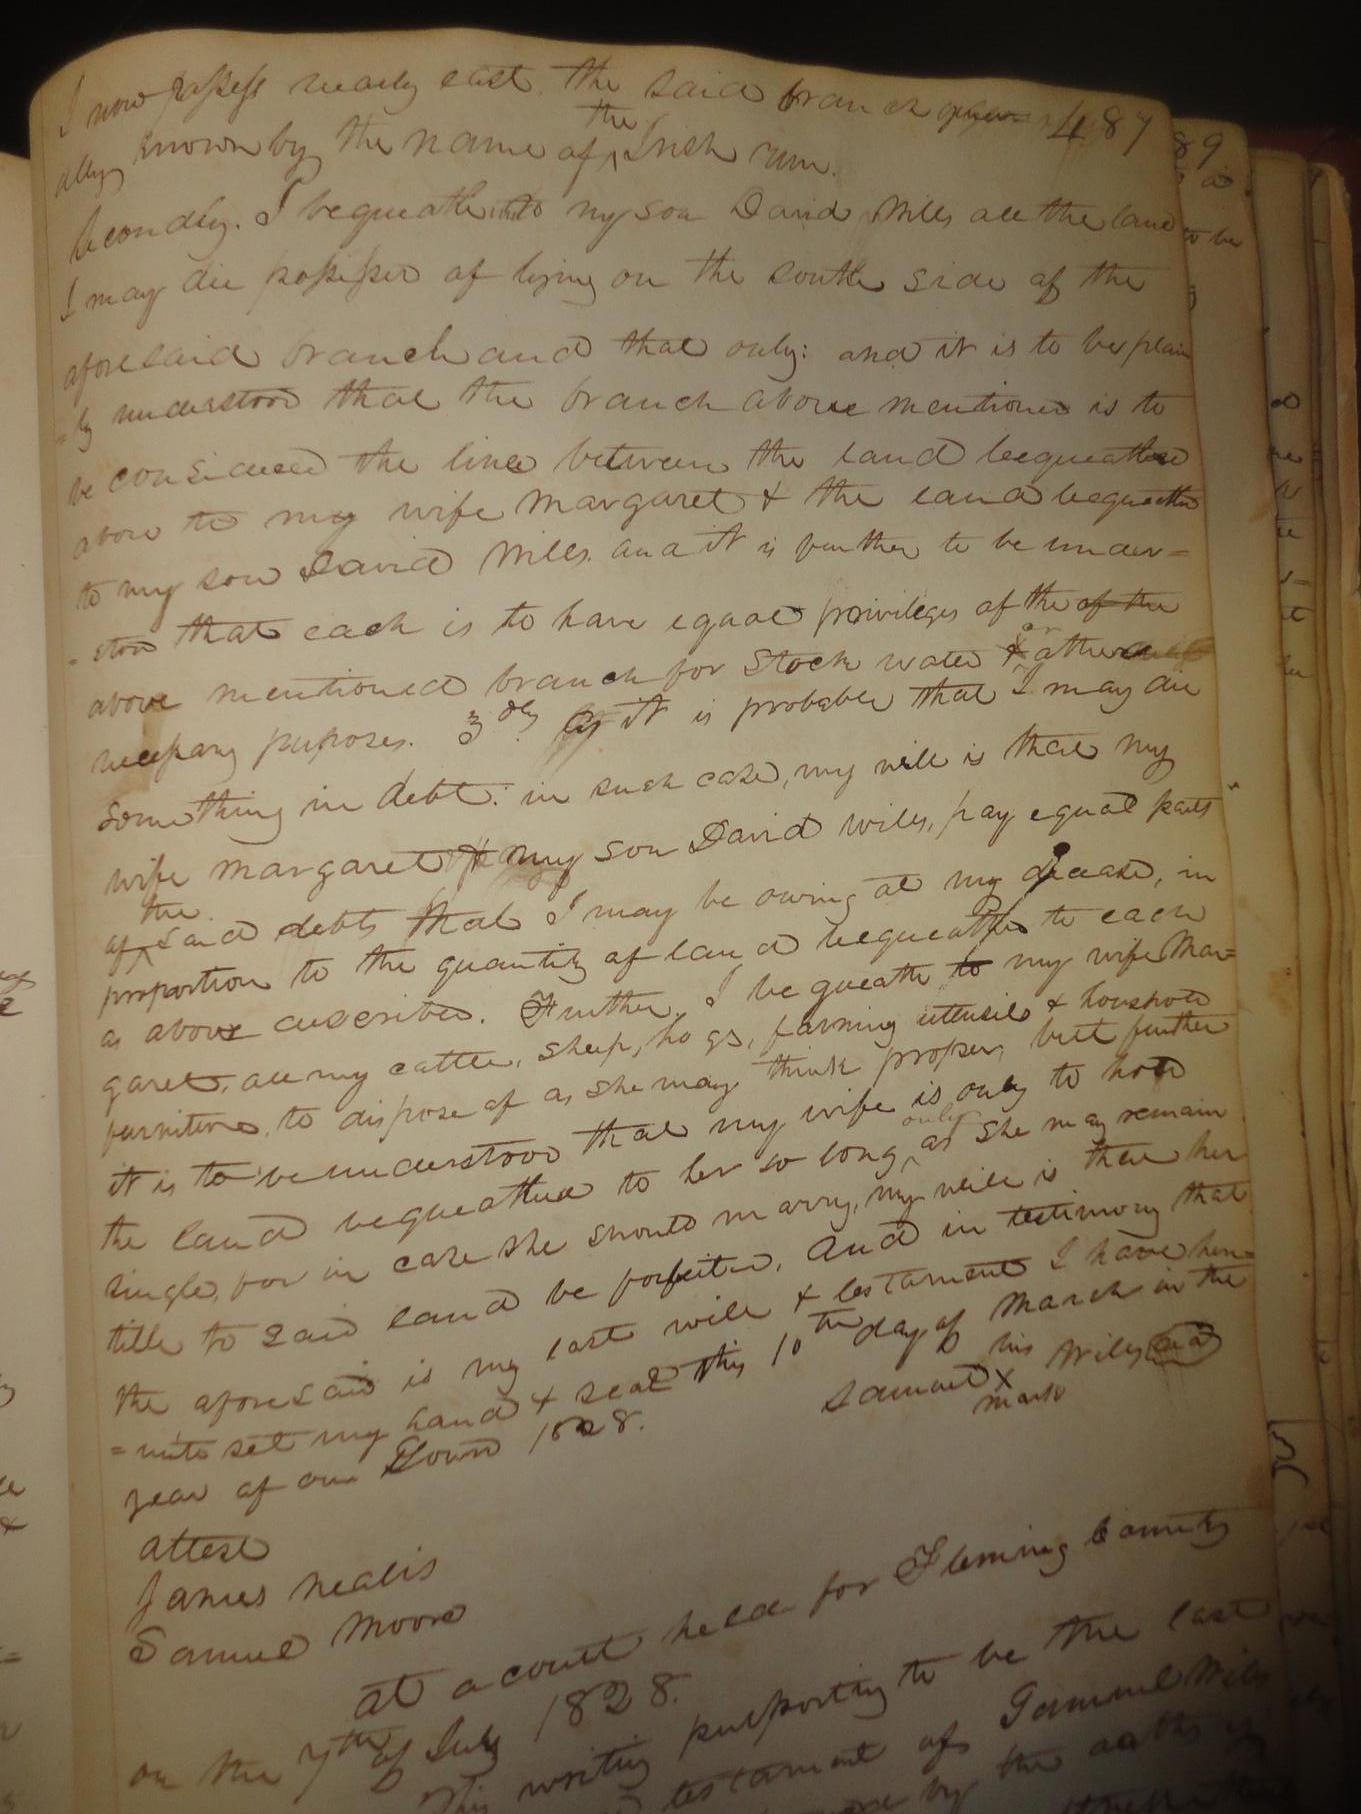 I now possess nearly east. the said branch gener= 487
ally known by the name of the Irish run.
Secondly. I bequeath unto my son David Wills all the land
I may die possesser of lying on the south side of the
aforesaid branch and that only: and it is to be plain
=ly understood that the branch above mentioned is to
be considered the line between the land bequeathed
above to my wife Margaret & the land bequeathed
to my son David Wills. and it is further to be under=
=stood that each is to have equal privileges of the of the
above mentioned branch for stock water & or other
necessary purposes. 3dly As it is probable that I may die
something in debt: in such case, my will is that my
wife Margaret & my son David Wills, pay equal parts
of the said debts that I may be owing at my decease, in
proportion to the quantity of land bequeathed to each
as above described. Further, I bequeath to my wife Mar=
garet, all my cattle, sheep, hogs, farming utensils & houshold
furniture, to dispose of as she may think proper, but further
it is to be understood that my wife is only to hold
the land bequeathed to her so long only as she may remain
single, for in case she should marry, my will is that her
title to said land be forfeited. And in testimony that
the aforesaid is my last will & testament I have here=
=unto set my hand & seal this 10th day of March in the
year of our Lord 1828.
his
Samuel X Wills Seal
mark
attest
James Nealis
Samuel Moore
at a court held for Fleming County
on the 7th of July 1828.
This writing purporting to be the last
testament of Samuel Wills
by the oaths of